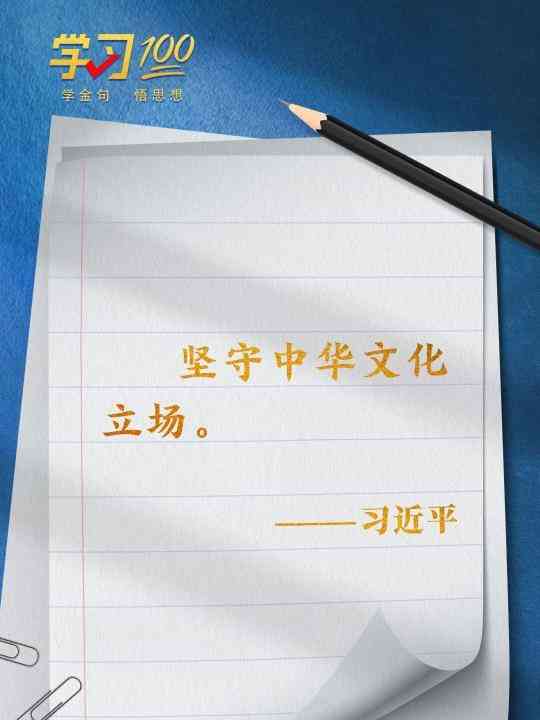 学习100
学金句 悟思想
坚守中华文化
立场。
——习近平